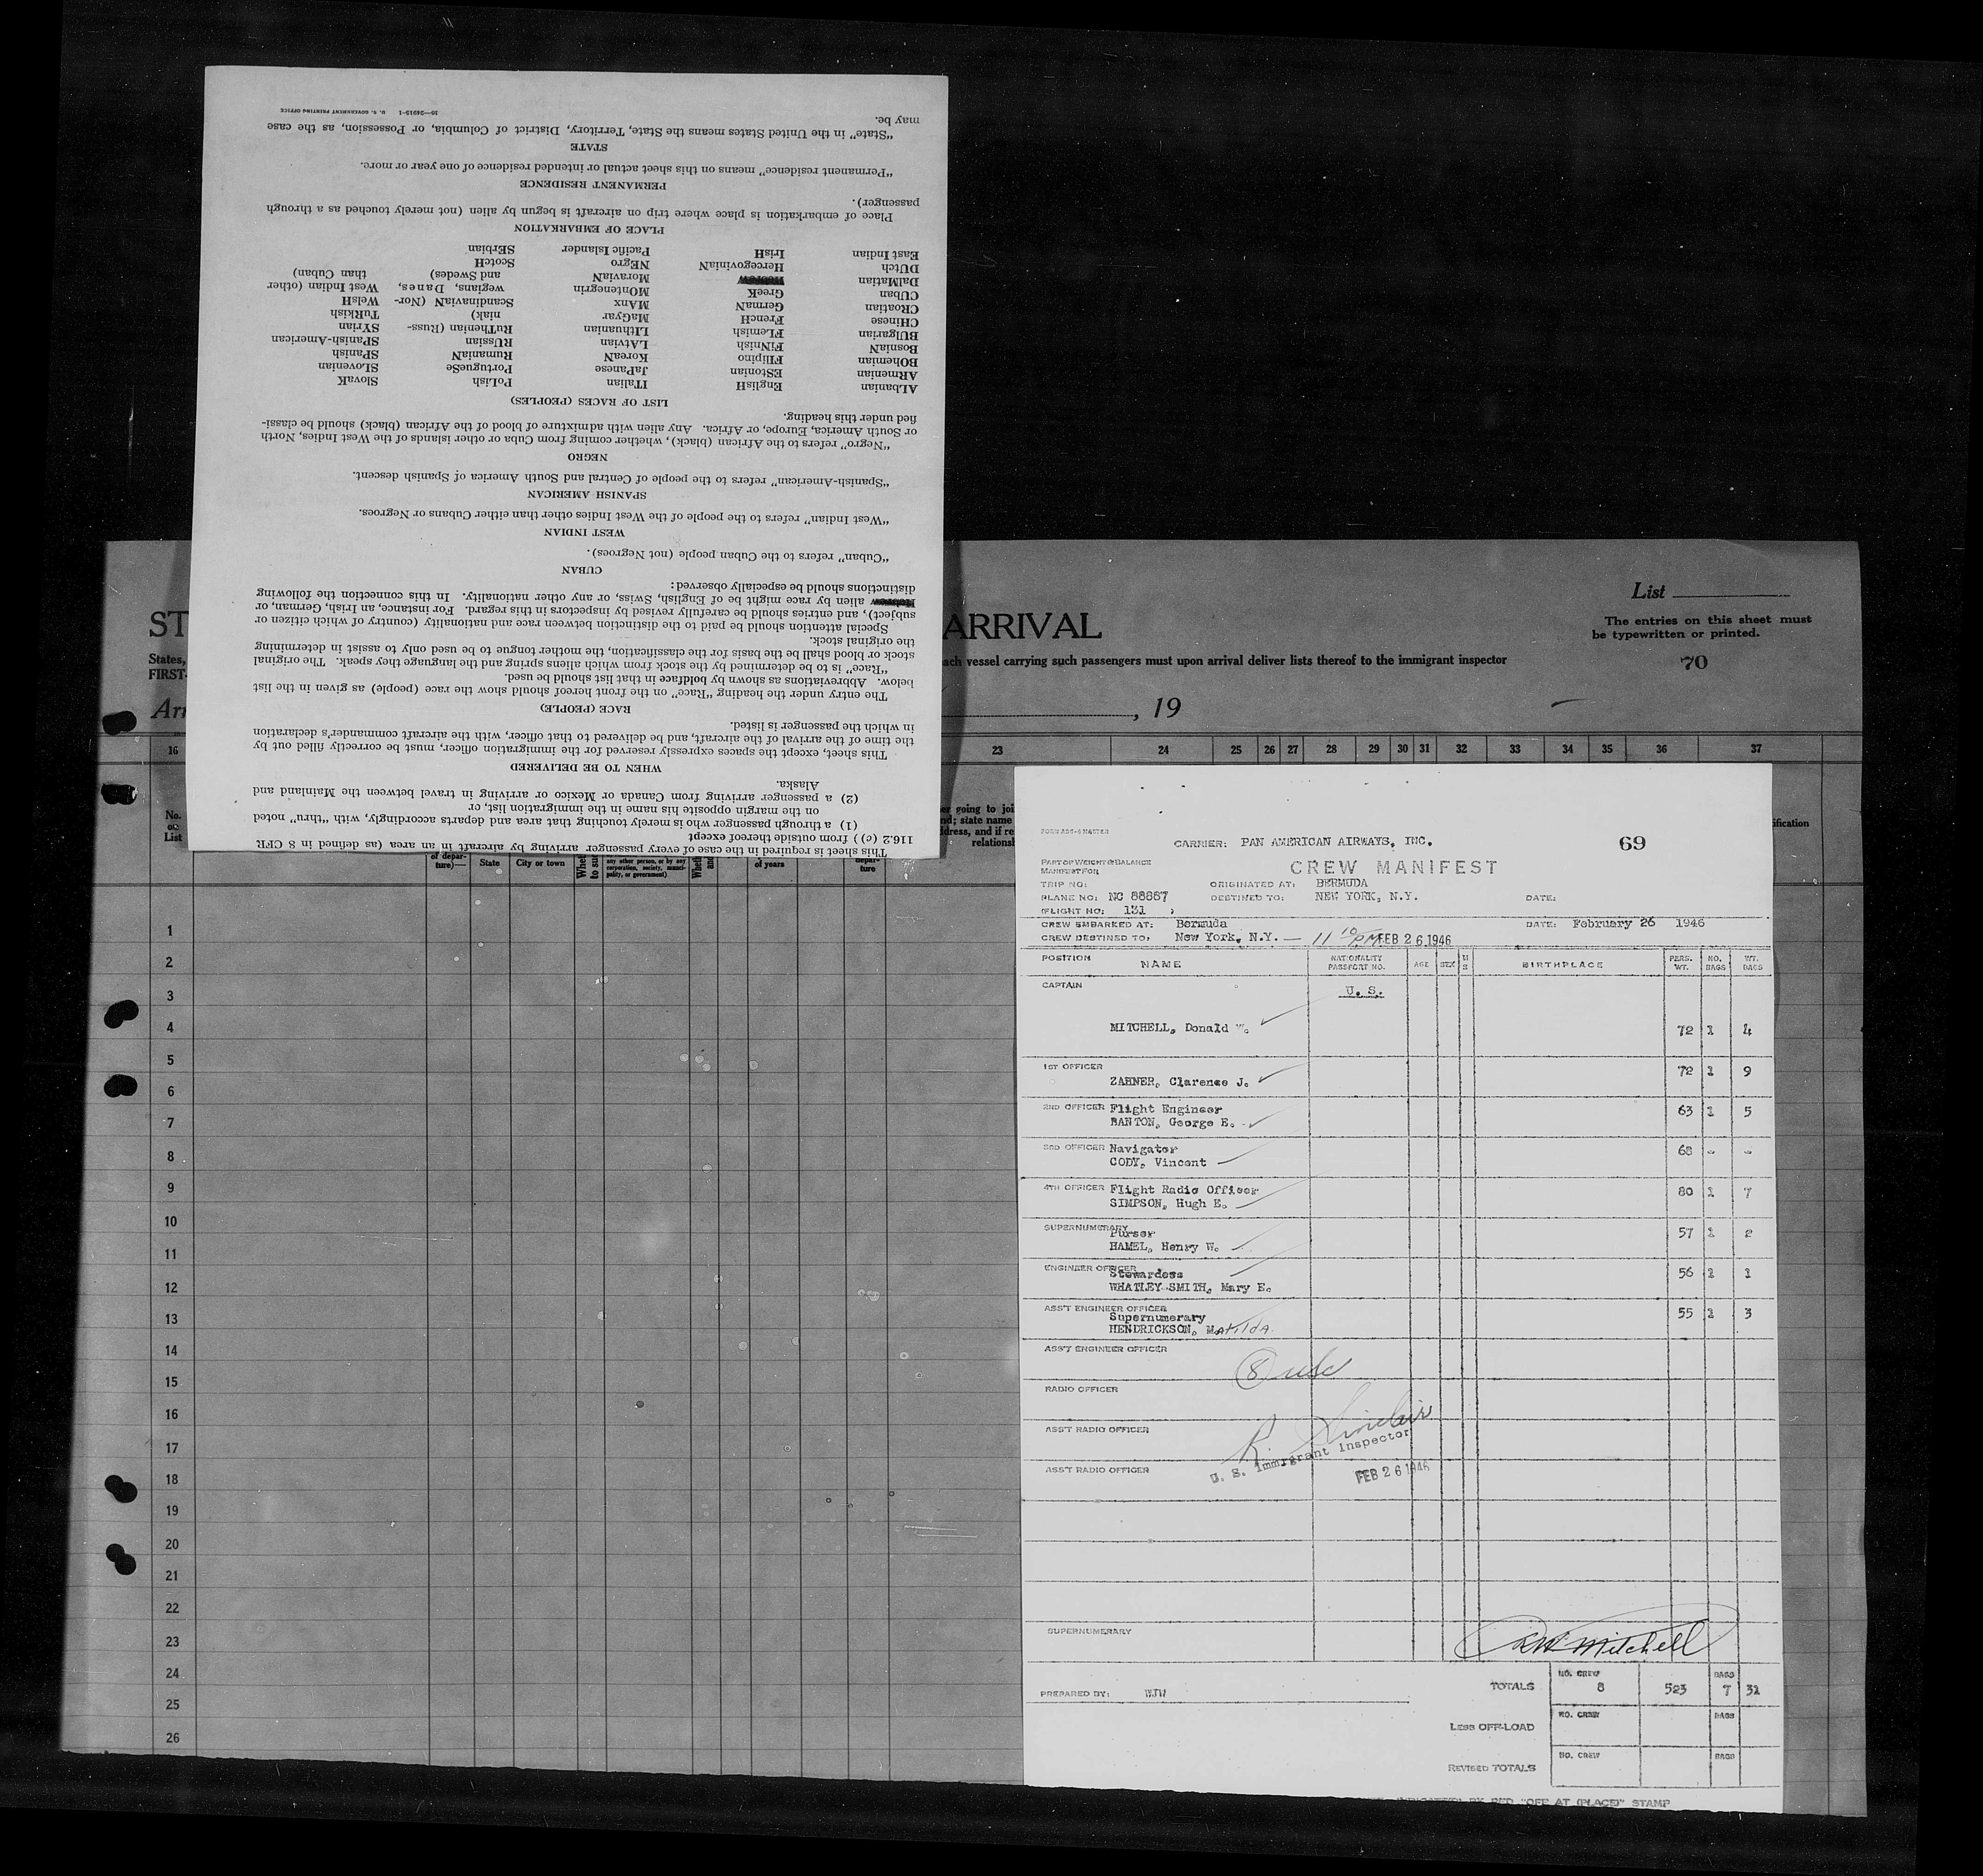 This sheet is required in the case of every passenger arriving by aircraft in an area (as defined in 8 CFR
116.2 (c)) from outside thereof except
(1) a through passenger who is merely touching that area and departs accordingly, with “thru” noted
on the margin opposite his name in the immigration list, or
(2) a passenger arriving from Canada or Mexico or arriving in travel between the Mainland and
Alaska.
WHEN TO BE DELIVERED
This sheet, except the spaces expressly reserved for the immigration officer, must be correctly filled out by
the time of the arrival of the aircraft, and be delivered to that officer, with the aircraft commander's declaration
in which the passenger is listed.
RACE (PEOPLE)
The entry under the heading “Race” on the front hereof should show the race (people) as given in the list
below. Abbreviations as shown by boldface in that list should be used.
“Race” is to be determined by the stock from which aliens spring and the language they speak. The original
stock or blood shall be the basis for the classification, the mother tongue to be used only to assist in determining
the original stock.
Special attention should be paid to the distinction between race and nationality (country of which citizen or
subject), and entries should be carefully revised by inspectors in this regard. For instance, an Irish, German, or
Hebrew alien by race might be of English, Swiss, or any other nationality. In this connection the following
distinctions should be especially observed:
CUBAN
“Cuban” refers to the Cuban people (not Negroes).
WEST INDIAN
“West Indian” refers to the people of the West Indies other than either Cubans or Negroes.
SPANISH AMERICAN
“Spanish-American” refers to the people of Central and South America of Spanish descent.
NEGRO
“Negro” refers to the African (black), whether coming from Cuba or other islands of the West Indies, North
or South America, Europe, or Africa. Any alien with admixture of blood of the African (black) should be classi-
fied under this heading.
LIST OF RACES (PEOPLES)
ALbanian EnglisH ITalian PoLish SlovaK
ARmenian EStonian JaPanese PortugueSe SLovenian
BOhemian FIlipino KoreaN RumaniaN SPanish
BosniaN FiNnish LAtvian RUssian SPanish-American
BUlgarian FLemish LIthuanian RuThenian (Russ- SYrian
CHinese FrencH MaGyar niak) TuRkish
CRoatian GermaN MAnx ScandinaviaN (Nor- WelsH
CUban GreeK MOntenegrin wegians, Danes, West Indian (other
DalMatian Hebrew MoraviaN and Swedes) than Cuban)
DUtch HercegoviniaN NEgro ScotcH
East Indian IrisH Pacific Islander SErbian
PLACE OF EMBARKATION
Place of embarkation is place where trip on aircraft is begun by alien (not merely touched as a through
passenger).
PERMANENT RESIDENCE
“Permanent residence” means on this sheet actual or intended residence of one year or more.
STATE
“State” in the United States means the State, Territory, District of Columbia, or Possession, as the case
may be.
16—24915-1 U. S. GOVERNMENT PRINTING OFFICE
List
ST ARRIVAL
The entries on this sheet must
be typewritten or printed.
States, ach vessel carrying such passengers must upon arrival deliver lists thereof to the immigrant inspector
FIRST-
70
Arr , 19
16 23 24 25 26 27 28 29 30 31 32 33 34 35 36 37
No.
on
List
of depar-
ture)—
State
City or town
any other person, or by any
corporation, society, munici-
pality, or government)
of years
depar-
ture
1
2
3
4
5
6
7
8
9
10
11
12
13
14
15
16
17
18
19
20
21
22
23
24
25
26
CARRIER: PAN AMERICAN AIRWAYS, INC.
69
PART OF WEIGHT & BALANCE
MANIFEST FOR
CREW MANIFEST
TRIP NO: ORIGINATED AT: BERMUDA
PLANE NO: NC 88887 DESTINED TO: NEW YORK, N.Y. DATE:
FLIGHT NO: 131
CREW EMBARKED AT: Bermuda DATE: February 26 1946
CREW DESTINED TO, New York, N.Y. — 11 10 PM FEB 26 1946
POSITION NAME NATIONALITY PASSPORT NO. AGE SEX M S BIRTHPLACE PERS. WT. NO. BAGS WT. BAGS
CAPTAIN U. S.
MITCHELL, Donald W. 72 1 4
1ST OFFICER
ZAHNER, Clarence J. 72 1 9
2ND OFFICER Flight Engineer
BANTON, George E. 63 1 5
3RD OFFICER Navigator
CODY, Vincent 68 - -
4TH OFFICER Flight Radio Officer
SIMPSON, Hugh E. 80 1 7
SUPERNUMERARY Purser
HAMEL, Henry W. 57 1 2
ENGINEER OFFICER Stewardess
WHATLEY-SMITH, Mary E. 56 1 1
ASS'T ENGINEER OFFICER
Supernumerary
HENDRICKSON, Matilda 55 1 3
ASS'T ENGINEER OFFICER
8 usc
RADIO OFFICER
ASS'T RADIO OFFICER
R. Sinclair
U. S. Immigrant Inspector
ASS'T RADIO OFFICER
FEB 26 1946
SUPERNUMERARY
DW Mitchell
PREPARED BY: WJW
TOTALS NO. CREW 8 523 BAGS 7 31
LESS OFF-LOAD NO. CREW BAGS
REVISED TOTALS NO. CREW BAGS
INDICATED BY RED "OFF AT (PLACE)" STAMP